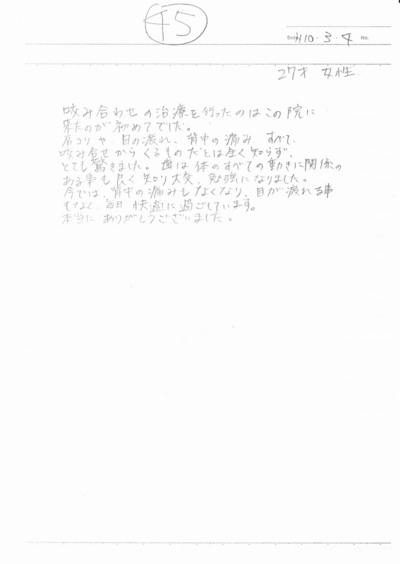 45
H10・3・4 No.
27才 女性
咬み合わせの治療を行ったのはこの院に
来たのが初めてでした。
肩コリや、目の疲れ、背中の痛み、すべて、
咬み合せからくるものだとは全く知らず、
とても驚きました。歯は体のすべての動きに関係の
ある事も良く知り大変、勉強になりました。
今では、背中の痛みもなくなり、目が疲れる事
もなく、毎日快適に過ごしています。
本当にありがとうございました。